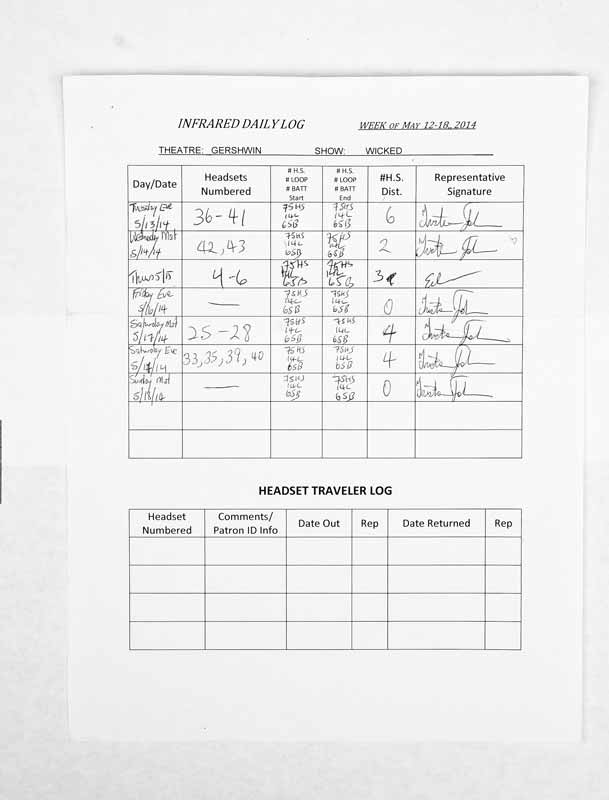 INFRARED DAILY LOG WEEK OF MAY 12-18, 2014
THEATRE: GERSHWIN SHOW: WICKED
Day/Date Headsets Numbered # H.S. # LOOP # BATT Start # H.S. # LOOP # BATT End #H.S. Dist. Representative Signature
Tuesday Eve 5/13/14 36-41 75HS 14L 65B 75HS 14L 65B 6
Wednesday Mat 5/14/14 42,43 75HS 14L 65B 75HS 14L 65B 2
Thurs 5/15 4-6 75HS 14L 65B 75HS 14L 65B 3
Friday Eve 5/16/14 — 75HS 14L 65B 75HS 14L 65B 0
Saturday Mat 5/17/14 25-28 75HS 14L 65B 75HS 14L 65B 4
Saturday Eve 5/17/14 33,35,39,40 75HS 14L 65B 75HS 14L 65B 4
Sunday Mat 5/18/14 — 75HS 14L 65B 75HS 14L 65B 0
HEADSET TRAVELER LOG
Headset Numbered Comments/ Patron ID Info Date Out Rep Date Returned Rep